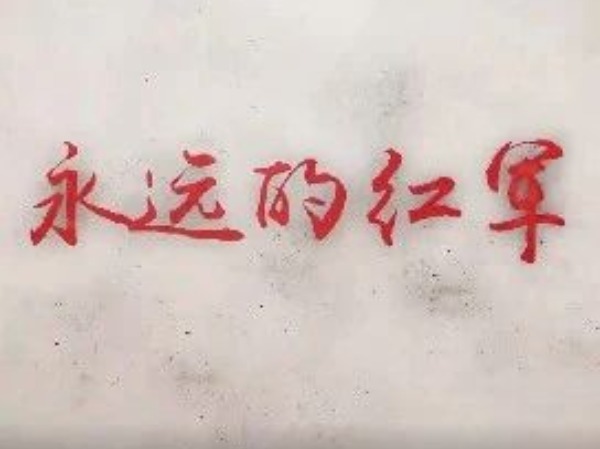 永远的红军